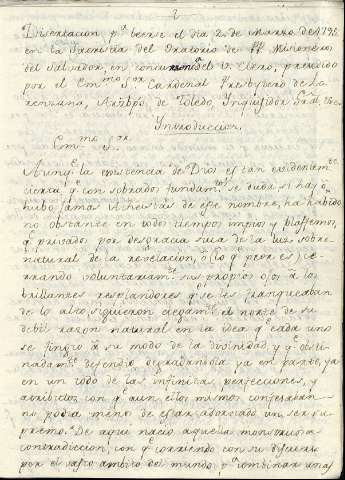 2
Disertacion pª leerse el dia 2 de Marzo de 1795
en la Iglesia del Oratorio de PP. Misioneros
del Salvador, en del V. Clero, presidido
por el Emmo Sor Cardenal Presbytero de Lo-
renzana, Arzbpo de Toledo, Inquisidor Gral, &c.
Introduccion.
Emmo Sor
Aunqe la existencia de Dios es tan evidentemte
cierta qe con sobrados fundamtos se duda si hay ó
hubo jamas Atheistas de ese nombre, ha habido
no obstante en todos tiempos impios y blasfemos,
qe privados por desgracia suia de la luz sobre
natural de la revelacion, ó lo qe peor es, ce-
rrando voluntariamte sus propios ojos á los
brillantes resplandores qe se les franqueaban
de lo alto, siguieron ciegamte el norte de su
debil razon natural en la idea qe cada uno
se fingió á su modo de la divinidad, y qe obsti-
nadamte defendió degradandola ya en parte, ya
en un todo de las infinitas perfecciones, y
atributos con qe aun ellos mismos confesaban
no podia menos de estar adornado un ser su-
premo. De aqui nació aquella monstruosa
contradiccion, con qe corriendo con su discurso
por el vasto ambito del mundo, pª combinar unas